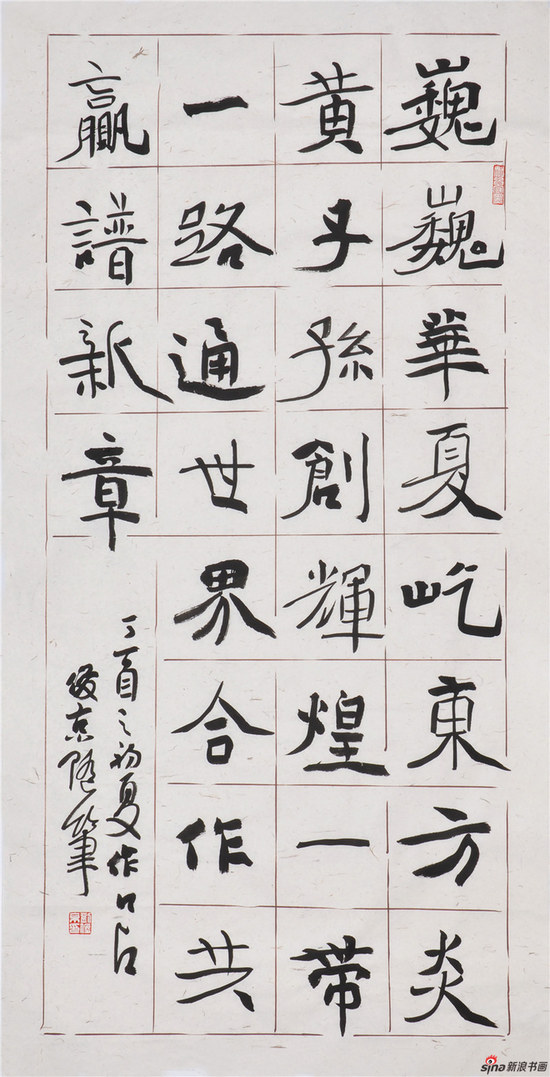 巍巍華夏屹東方炎
黄子孫創輝煌一帶
一路通世界合作共
贏譜新章
丁酉之初夏作口占
京随筆
sina新浪书画